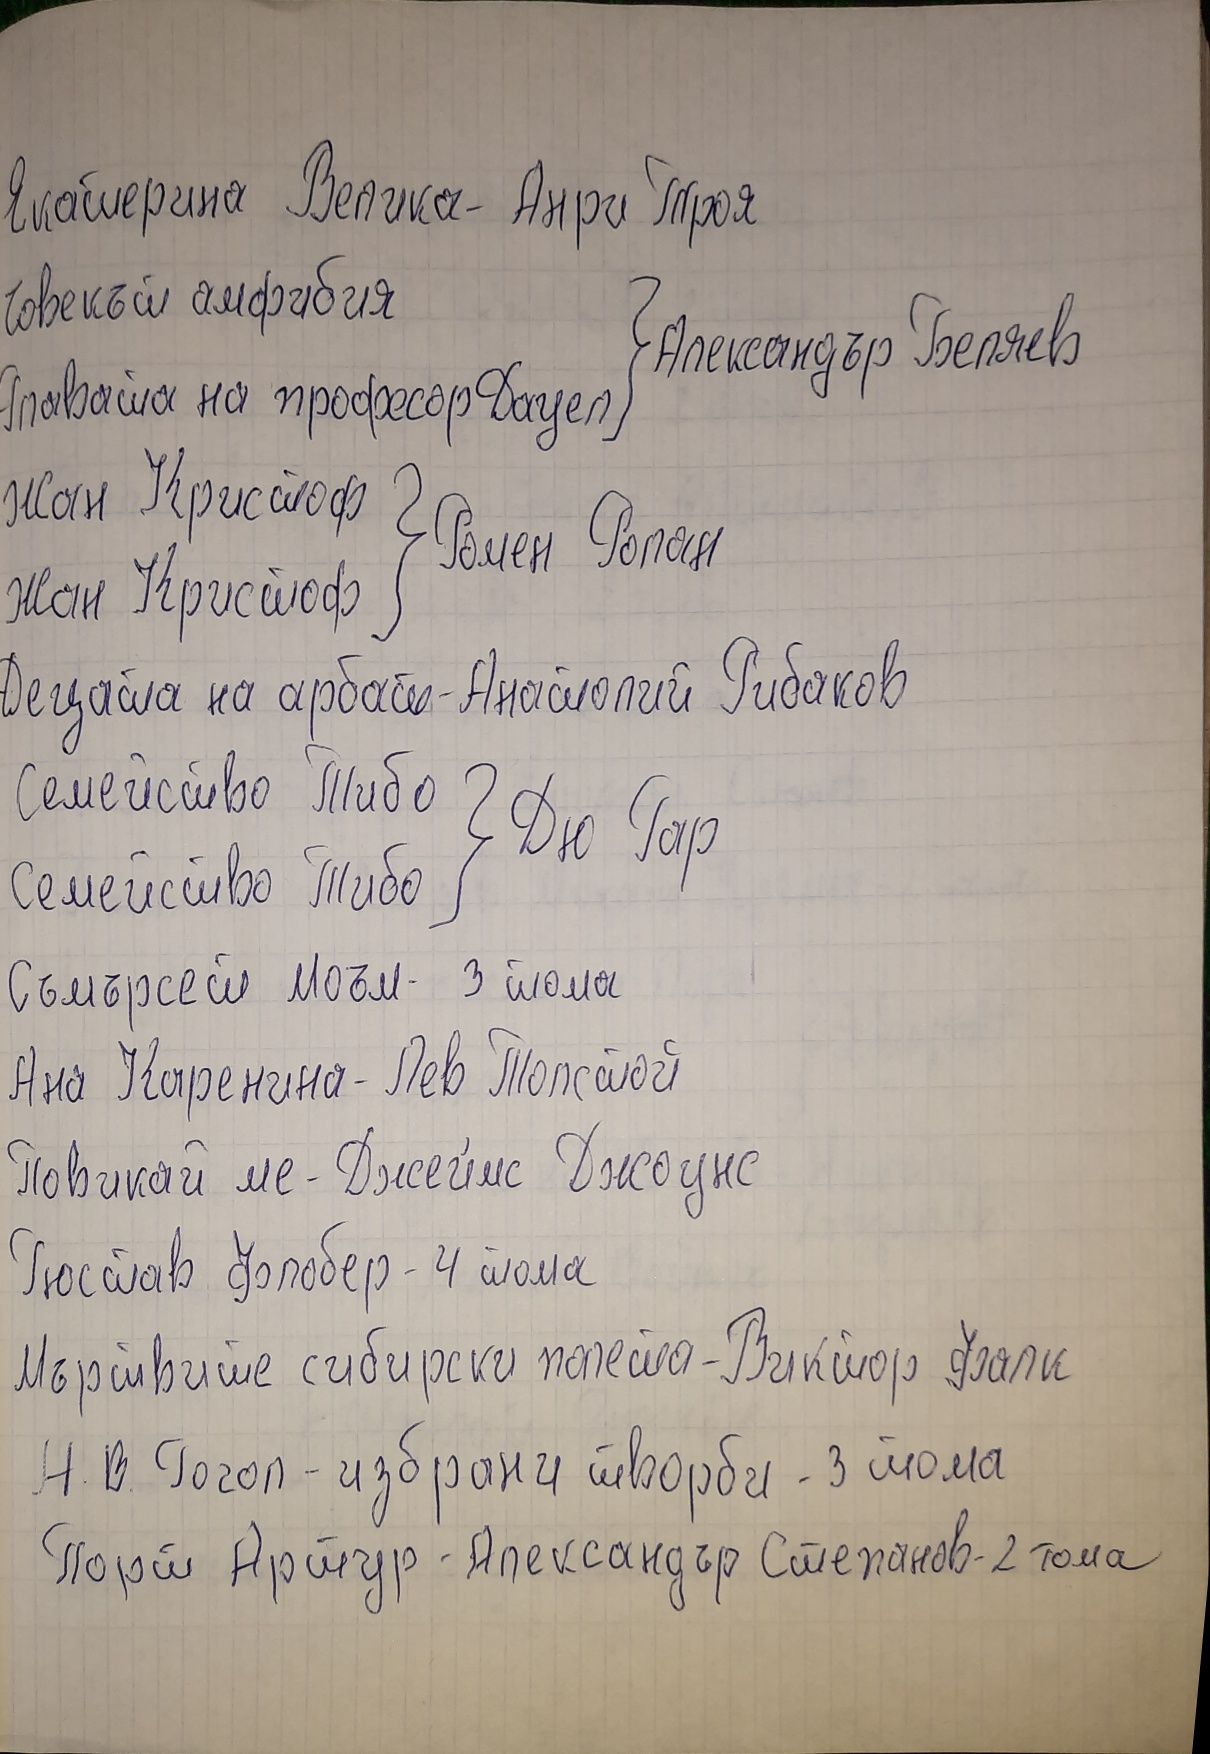 Екатерина Велика - Анри Троя
Човекът амфибия
Главата на професор Дауел } Александър Беляев
Жан Кристоф
Жан Кристоф } Ромен Ролан
Децата на арбат - Анатолий Рибаков
Семейство Тибо
Семейство Тибо } Дю Гар
Съмърсет Моъм - 3 тома
Ана Каренина - Лев Толстой
Повикай ме - Джеймс Джоунс
Гюстав Флобер - 4 тома
Мъртвите сибирски полета - Виктор Фалк
Н. В. Гогол - избрани творби - 3 тома
Порт Артур - Александър Степанов - 2 тома